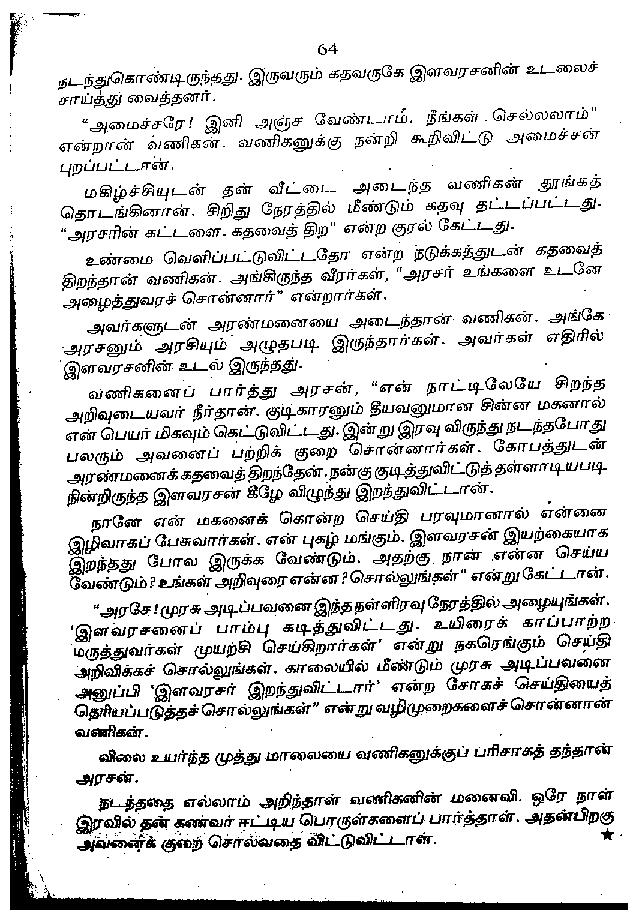 64
நடந்துகொண்டிருந்தது. இருவரும் கதவருகே இளவரசனின் உடலைச்
சாய்த்து வைத்தனர்.
“அமைச்சரே! இனி அஞ்ச வேண்டாம். நீங்கள் செல்லலாம்"
என்றான் வணிகன். வணிகனுக்கு நன்றி கூறிவிட்டு அமைச்சன்
புறப்பட்டான்.
மகிழ்ச்சியுடன் தன் வீட்டை அடைந்த வணிகன் தூங்கத்
தொடங்கினான். சிறிது நேரத்தில் மீண்டும் கதவு தட்டப்பட்டது.
“அரசரின் கட்டளை. கதவைத் திற” என்ற குரல் கேட்டது.
உண்மை வெளிப்பட்டுவிட்டதோ என்ற நடுக்கத்துடன் கதவைத்
திறந்தான் வணிகன். அங்கிருந்த வீரர்கள், “அரசர் உங்களை உடனே
அழைத்துவரச் சொன்னார்" என்றார்கள்.
அவர்களுடன் அரண்மனையை அடைந்தான் வணிகன். அங்கே
அரசனும் அரசியும் அழுதபடி இருந்தார்கள். அவர்கள் எதிரில்
இளவரசனின் உடல் இருந்தது.
வணிகனைப் பார்த்து அரசன், “என் நாட்டிலேயே சிறந்த
அறிவுடையவர் நீர்தான். குடிகாரனும் தீயவனுமான சின்ன மகனால்
என் பெயர் மிகவும் கெட்டுவிட்டது. இன்று இரவு விருந்து நடந்தபோது
பலரும் அவனைப் பற்றிக் குறை சொன்னார்கள். கோபத்துடன்
அரண்மனைக் கதவைத் திறந்தேன். நன்கு குடித்துவிட்டுத் தள்ளாடியபடி
நின்றிருந்த இளவரசன் கீழே விழுந்து இறந்துவிட்டான்.
நானே என் மகனைக் கொன்ற செய்தி பரவுமானால் என்னை
இழிவாகப் பேசுவார்கள். என் புகழ் மங்கும். இளவரசன் இயற்கையாக
இறந்தது போல இருக்க வேண்டும். அதற்கு நான் என்ன செய்ய
வேண்டும்? உங்கள் அறிவுரை என்ன? சொல்லுங்கள்" என்று கேட்டான்.
“அரசே! முரசு அடிப்பவனை இந்த நள்ளிரவு நேரத்தில் அழையுங்கள்.
'இளவரசனைப் பாம்பு கடித்துவிட்டது. உயிரைக் காப்பாற்ற
மருத்துவர்கள் முயற்சி செய்கிறார்கள்' என்று நகரெங்கும் செய்தி
அறிவிக்கச் சொல்லுங்கள். காலையில் மீண்டும் முரசு அடிப்பவனை
அனுப்பி 'இளவரசர் இறந்துவிட்டார்' என்ற சோகச் செய்தியைத்
தெரியப்படுத்தச் சொல்லுங்கள்" என்று வழிமுறைகளைச் சொன்னான்
வணிகன்.
விலை உயர்ந்த முத்து மாலையை வணிகனுக்குப் பரிசாகத் தந்தான்
அரசன்.
நடந்ததை எல்லாம் அறிந்தாள் வணிகனின் மனைவி. ஒரே நாள்
இரவில் தன் கணவர் ஈட்டிய பொருள்களைப் பார்த்தாள். அதன்பிறகு
அவனைக் குறை சொல்வதை விட்டுவிட்டாள். ★